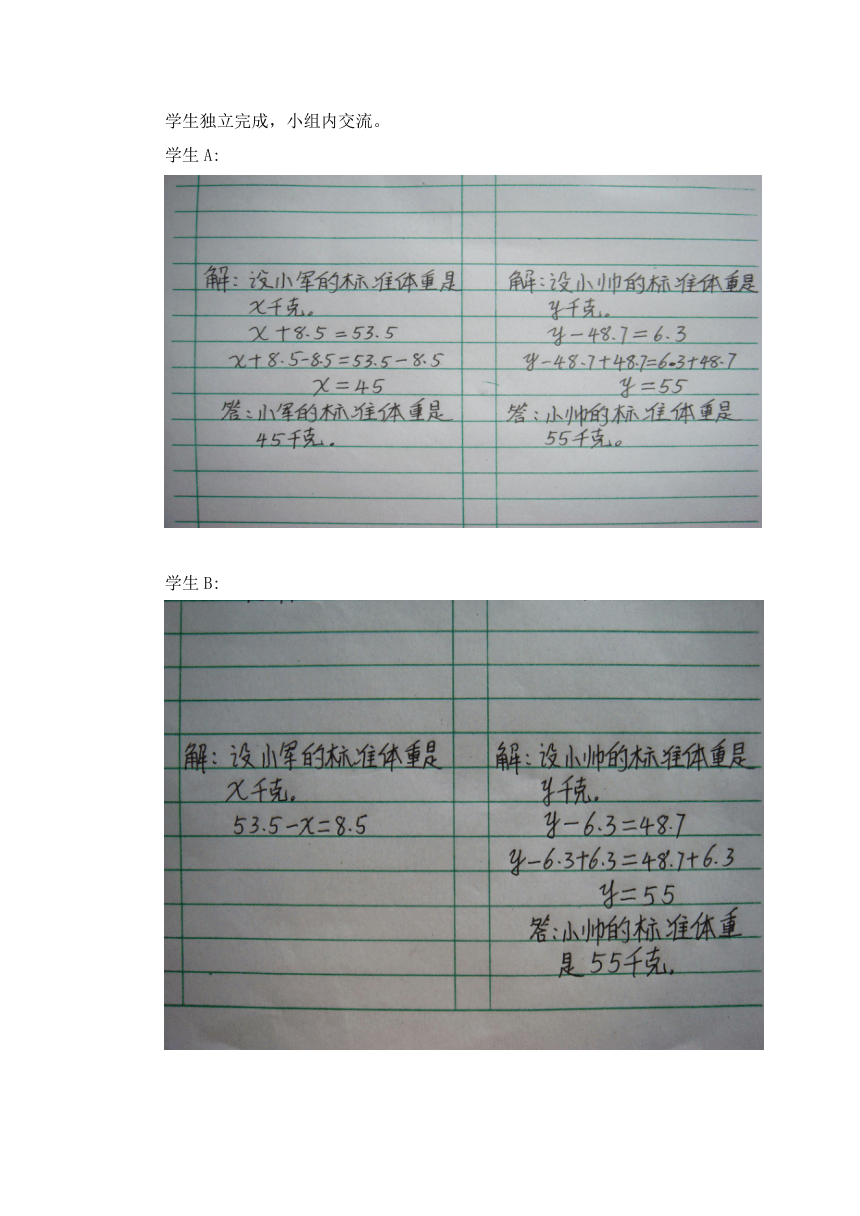 学生独立完成，小组内交流。
学生 A:
解：设小军的标准体重是
x千克。
x+8.5=53.5
x+8.5-8.5=53.5-8.5
x=45
答：小军的标准体重是
45千克.
解：设小帅的标准体重是
y千克。
y-48.7=6.3
y-48.7+48.7=6.3+48.7
y=55
答：小帅的标准体重是
55千克。
学生 B:
解：设小军的标准体重是
x千克。
53.5-x=8.5
解：设小帅的标准体重是
y千克.
y-6.3=48.7
y-6.3+6.3=48.7+6.3
y=55
答：小帅的标准体重
是 55千克.